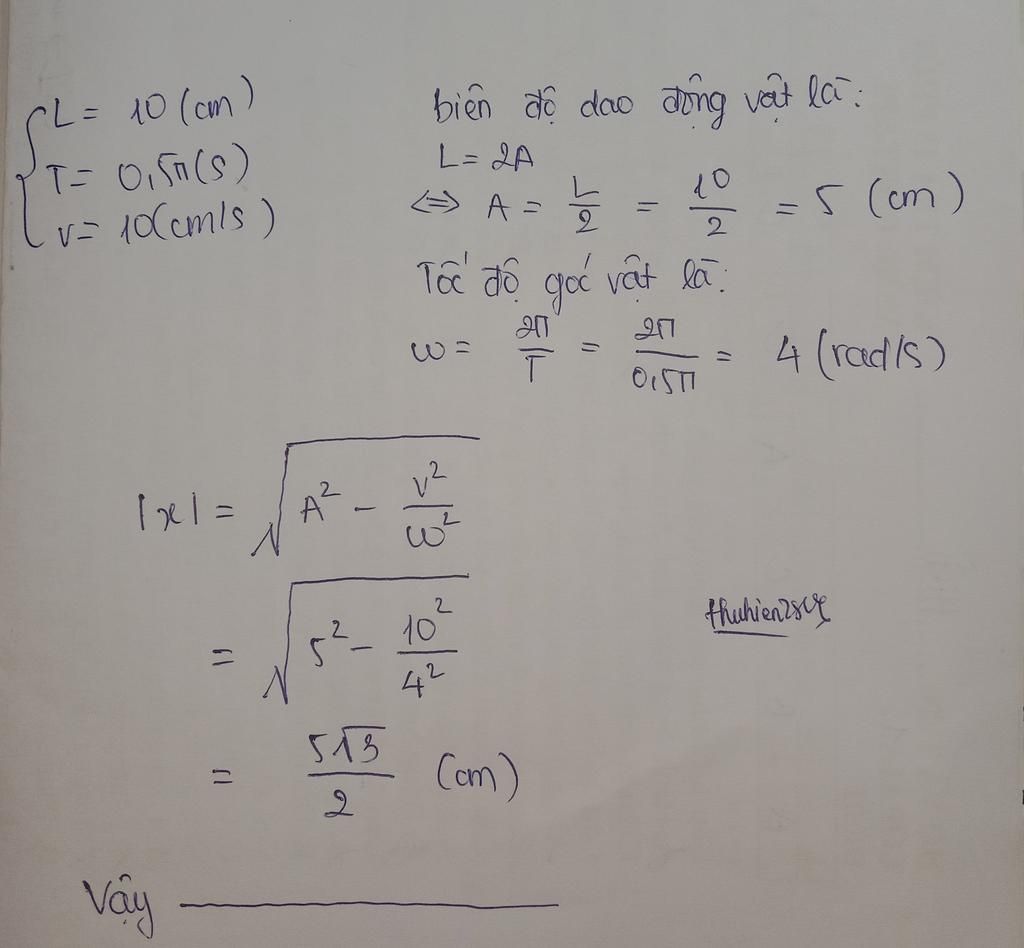 L = 10 (cm)
T = 0,5π(s)
v = 10(cm/s)
biên độ dao động vật là:
L = 2A
<=> A = L/2 = 10/2 = 5 (cm)
Tốc độ góc vật là:
ω = 2π/T = 2π/0,5π = 4 (rad/s)
|x| = √(A² - v²/ω²)
= √(5² - 10²/4²)
= 5√3/2 (cm)
Vậy